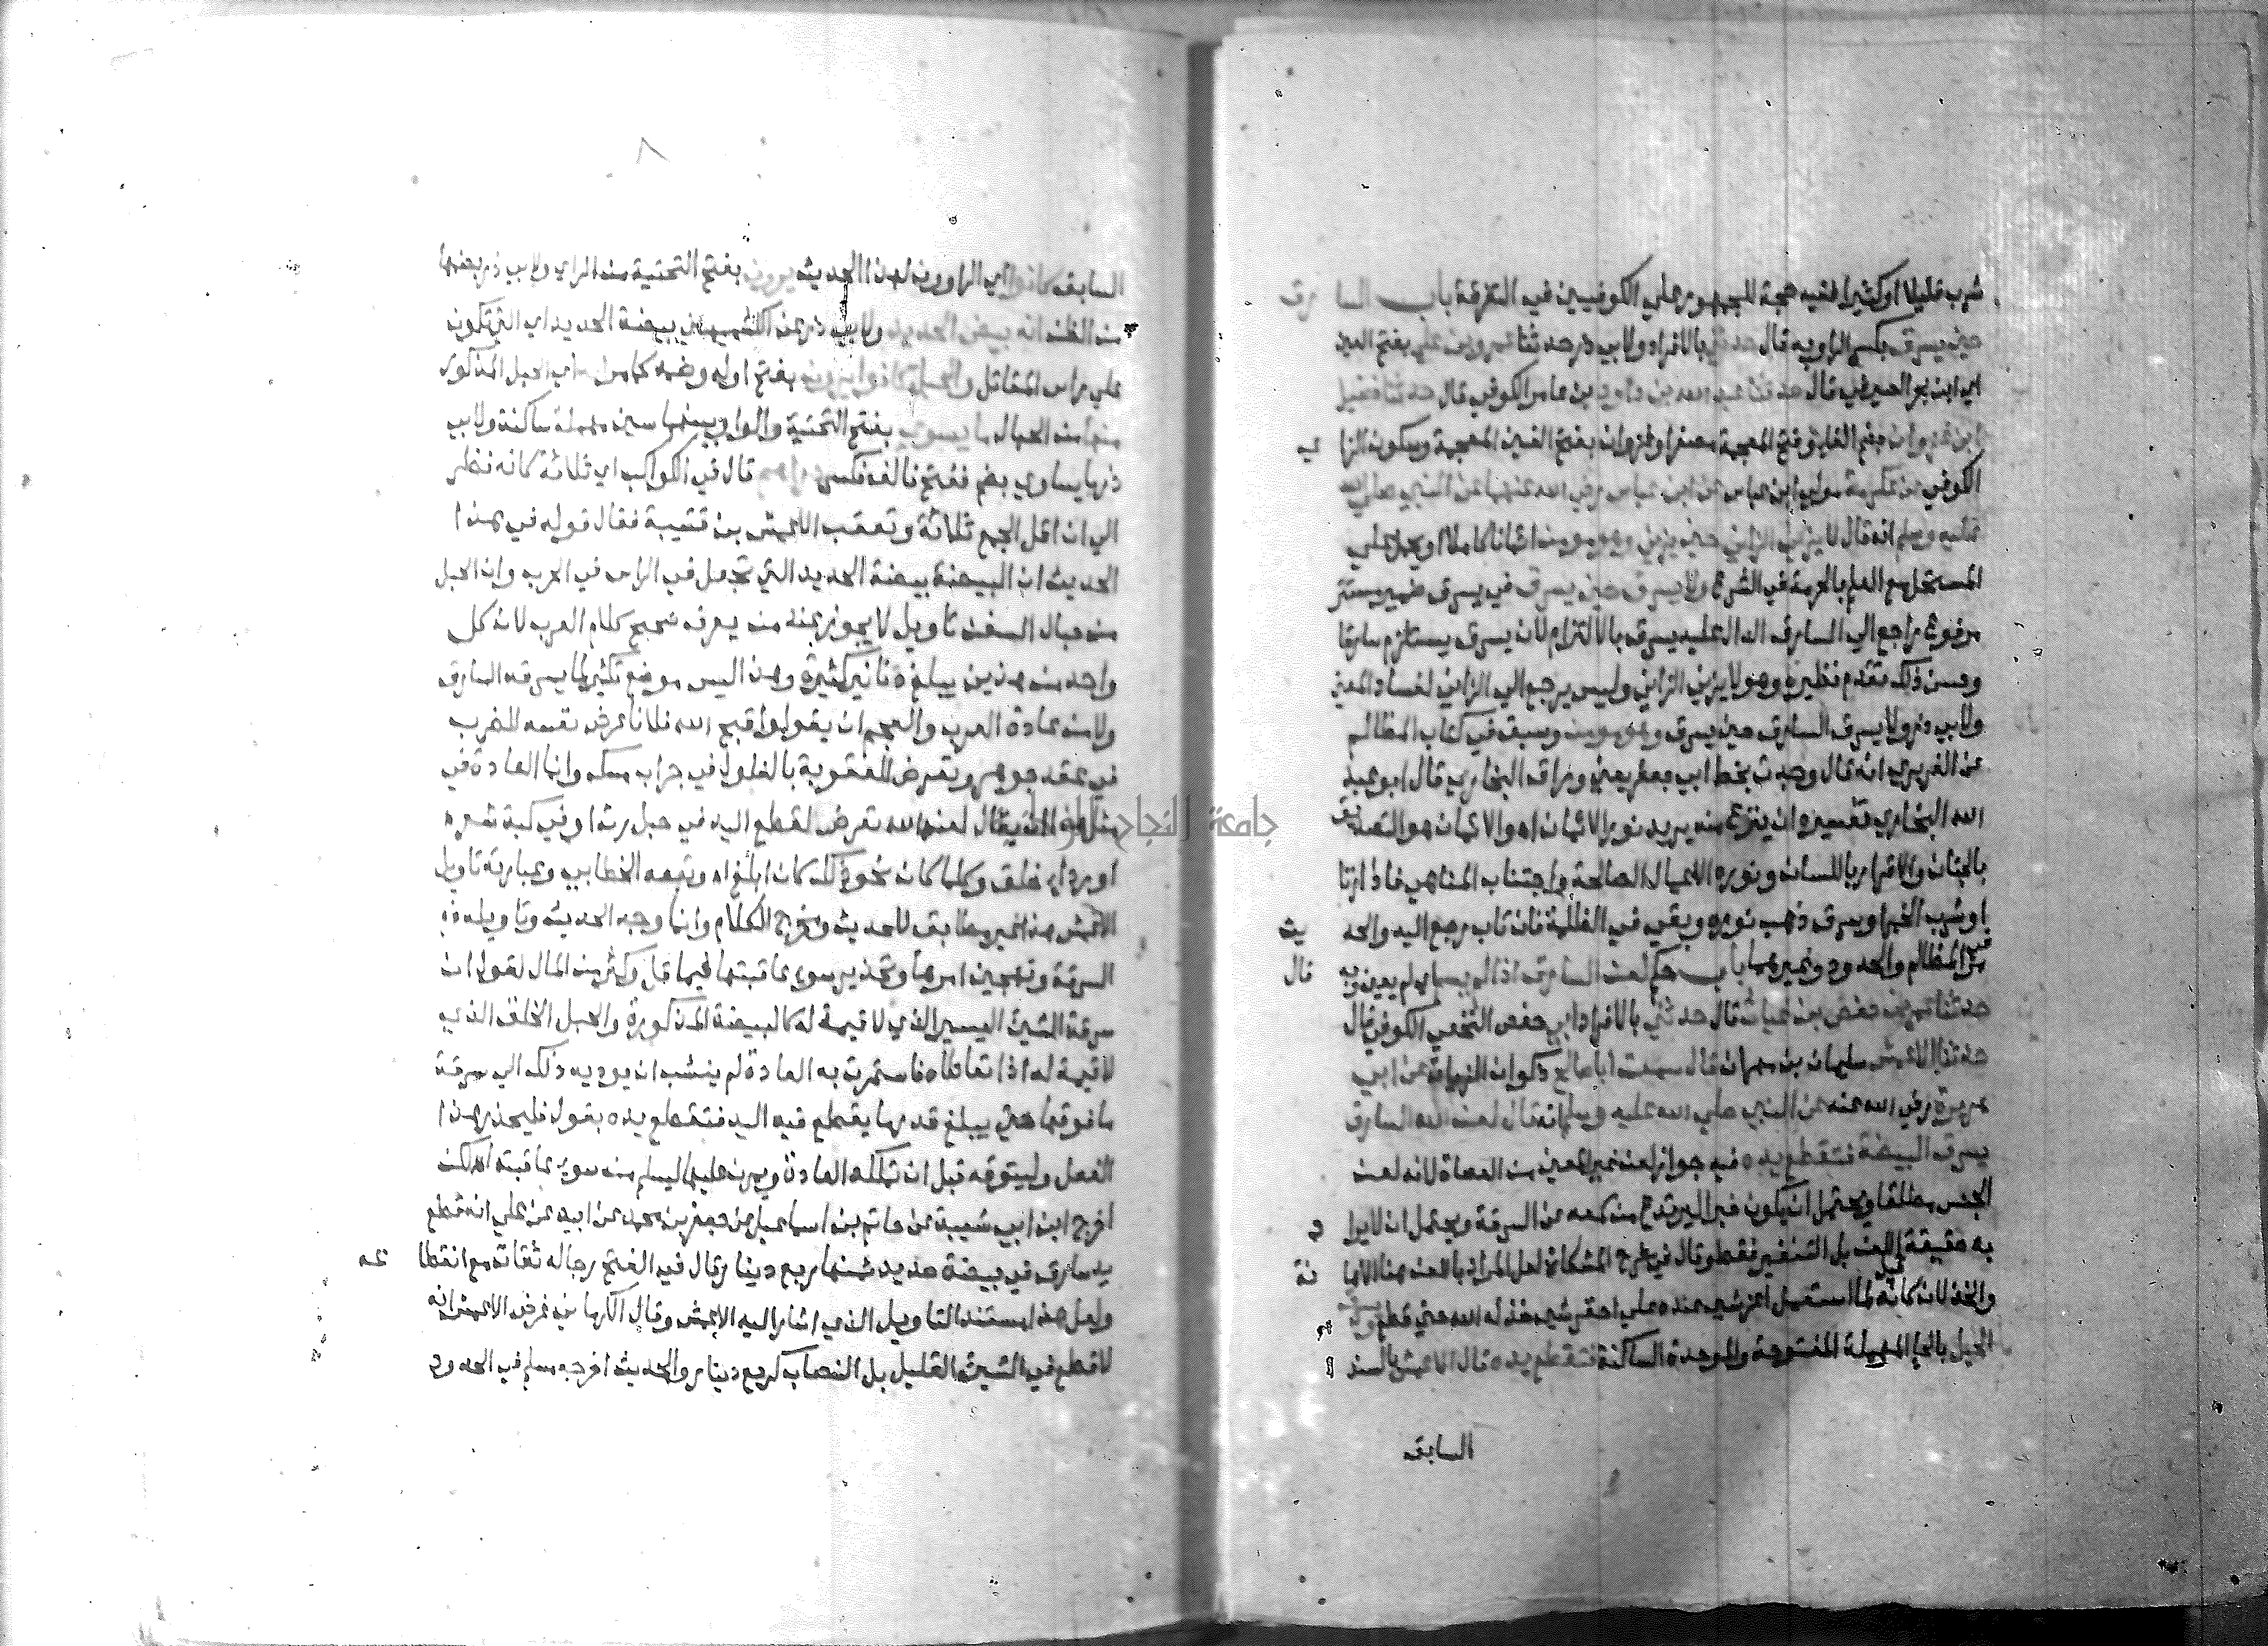 شرب قليلا او كثيرا ففيه حجة للجمهور علي الكوفيين في التفرقة باب السارق
حين يسرق بكسر الراء وبه قال حدثني بالافراد ولابي ذر حدثنا عمرو بن علي بفتح العين
اي ابن بحر الصيرفي قال حدثنا عبد الله بن داود بن عامر الكوفي قال حدثنا فضيل
ابن غزوان بضم الفاء وفتح المعجمة مصغرا وغزوان بفتح الغين المعجمة وسكون الزاي
الكوفي عن عكرمة مولي ابن عباس عن ابن عباس رضي الله عنهما عن النبي صلي الله
عليه وسلم انه قال لا يزني الزاني حين يزني وهو مومن ايمانا كاملا او يحمل علي
المستحل مع العلم بالحرمة في الشرع ولا يسرق حين يسرق في يسرق ضمير مستتر
مرفوع راجع الي السارق الدال عليه يسرق بالالتزام لان يسرق يستلزم سارقا
وحسن ذلك تقدم نظيره وهو لا يزني الزاني وليس يرجع الي الزاني لفساد المعني
ولابي ذر ولا يسرق السارق حين يسرق وهو مومن وسبق في كتاب المظالم
عن الفربري انه قال وجدت بخط ابي جعفر يعني وراق البخاري قال ابو عبد
الله البخاري تفسيره ان ينزع منه يريد نور الايمان اهو الايمان هو التصديق
بالجنان والاقرار باللسان ونوره الاعمال الصالحة واجتناب المناهي فاذا زنا
او شرب الخمر او سرق ذهب نوره وبقي في الظلمة فان تاب رجع اليه والحديث
في المظالم والحدود وغيرهما باب حكم لعن السارق اذا لم يسم اي لم يعين وبه قال
حدثنا عمر بن حفص بن غياث قال حدثني بالافراد ابي حفص النخعي الكوفي قال
حدثنا الاعمش سليمان بن مهران قال سمعت ابا صالح ذكوان الزيات عن ابي
هريرة رضي الله عنه عن النبي صلي الله عليه وسلم انه قال لعن الله السارق
يسرق البيضة فتقطع يده فيه جواز لعن غير المعين من العصاة لانه لعن
الجنس مطلقا ويحتمل ان يكون خبرا ليرتدع من سمعه عن السرقة ويحتمل ان لا يراد
به حقيقة اللعن بل التنفير فقط وقال في شرح المشكاة لعل المراد باللعن هنا الاهانة
والخذلان كانه قيل لما استعمل اعز شيء عنده علي احقر شيء خذله الله حتي قطع ويسرق
الحبل بالحاء المهملة المفتوحة والموحدة الساكنة فتقطع يده قال الاعمش بالسند
السابق
٨
السابق كانوا اي الراوون لهذا الحديث يرون بفتح التحتية من الراي ولابي ذر بضمها
من الظن انه بيض الحديد ولابي ذر عن الكشميهني بيضة الحديد اي التي تكون
علي راس المقاتل والحبل كانوا يرون بفتح اوله وضمه كما مر انه اي الحبل المذكور
منها من الحبال ما يسوي بفتح التحتية والواو بينهما سين مهملة ساكنة ولابي
ذر ما يساوي بضم ففتح فالف فكسر دراهم قال في الكواكب اي ثلاثة كانه نظر
الي ان اقل الجمع ثلاثة وتعقب الاعمش بن قتيبة فقال قوله في هذا
الحديث ان البيضة بيضة الحديد التي تجعل في الراس في الحرب وان الحبل
من حبال السفن تاويل لا يجوز عند من يعرف صحيح كلام العرب لان كل
واحد من هذين يبلغ دنانير كثيرة وهذا ليس موضع تكثير لما يسرقه السارق
ولا من عادة العرب والعجم ان يقولوا قبح الله فلانا عرض نفسه للضرب
في عقد جوهر وتعرض للعقوبة بالغلول في جراب مسك وانما العادة في
مثل هذا ان يقال لعنه الله تعرض لقطع اليد في حبل رث او في كبة شعر
او رداء خلق وكلما كان نحو ذلك كان ابلغ اه وتبعه الخطابي وعبارته تاويل
الاعمش هذا غير مطابق للحديث ومخرج الكلام وانما وجه الحديث وتاويله ذم
السرقة وتهجين امرها وتحذير سوء عاقبتها فيما قل وكثر من المال لقول ان
سرقة الشيء اليسير الذي لا قيمة له كالبيضة المذكورة والحبل الخلق الذي
لا قيمة له اذا تعاطاه فاستمرت به العادة لم ينشب ان يوديه ذلك الي سرقة
ما فوقها حتي يبلغ قدر ما يقطع فيه اليد فتقطع يده يقول فليحذر هذا
الفعل وليتوقه قبل ان تملكه العادة ويمرن عليها ليسلم من سوء عاقبته لكن
اخرج ابن ابي شيبة عن حاتم بن اسماعيل عن جعفر بن محمد عن ابيه عن علي انه قطع
يد سارق في بيضة حديد ثمنها ربع دينار قال في الفتح رجاله ثقات مع انقطاعه
ولعل هذا مستند التاويل الذي اشار اليه الاعمش وقال الكرماني غرض الاعمش انه
لا قطع في الشيء القليل بل النصاب كربع دينار والحديث اخرجه مسلم في الحدود
جامعة النجاح